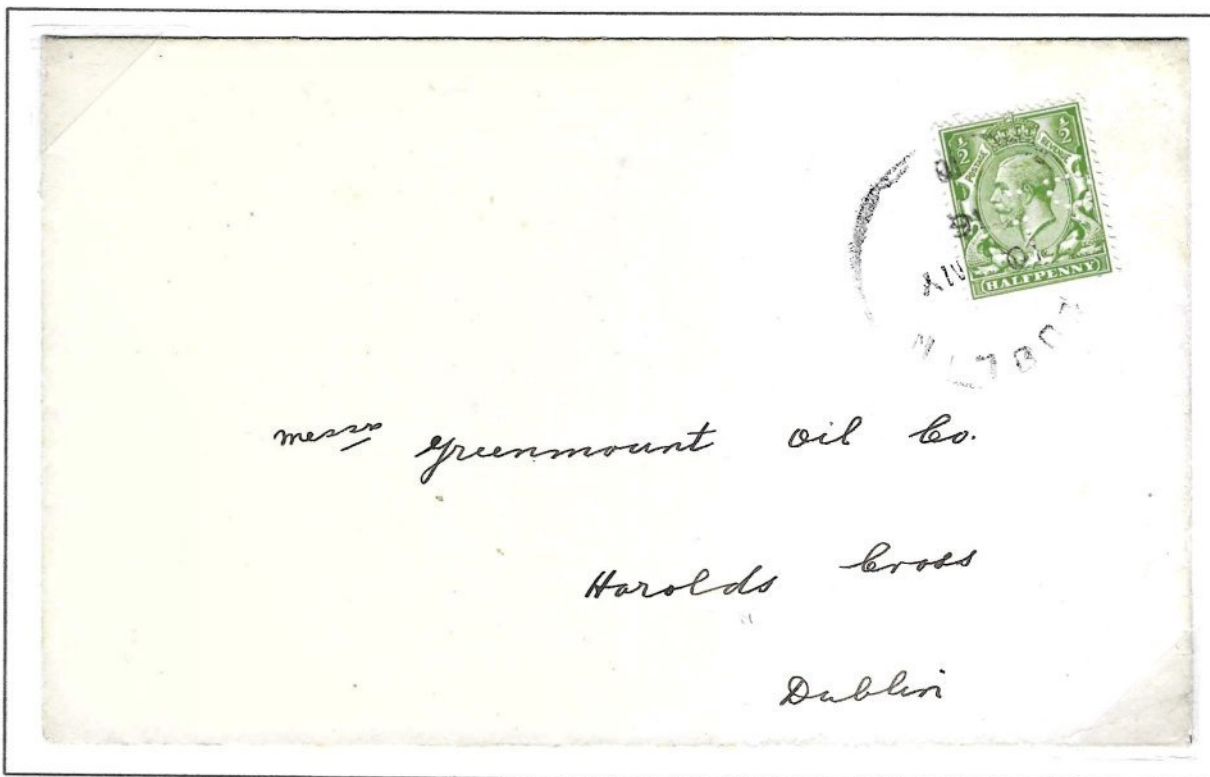 ½ ½
POSTAGE REVENUE
HALFPENNY
DUBLIN
Messrs Greenmount Oil Co.
Harolds Cross
Dublin